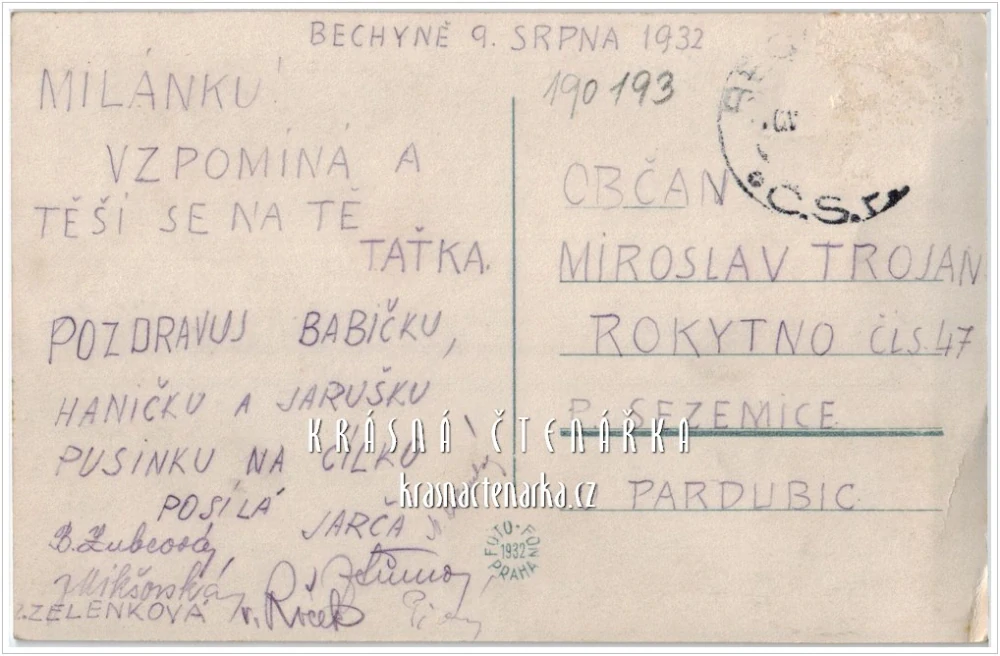 BECHYNĚ 9. SRPNA 1932
MILÁNKU!
VZPOMÍNÁ A
TĚŠÍ SE NA TĚ
TAŤKA.
POZDRAVUJ BABIČKU,
HANIČKU A JARUŠKU
PUSINKU NA CILKU
POSÍLÁ
JARČA
B. Zubcová,
Mikšovská
ZELENKOVÁ
190 193
Č.S.R.
OBČAN
MIROSLAV TROJAN
ROKYTNO ČÍS. 47
P. SEZEMICE
PARDUBIC
KRÁSNÁ ČTENÁŘKA
krasnactenarka.cz
FOTO-FON
1932
PRAHA